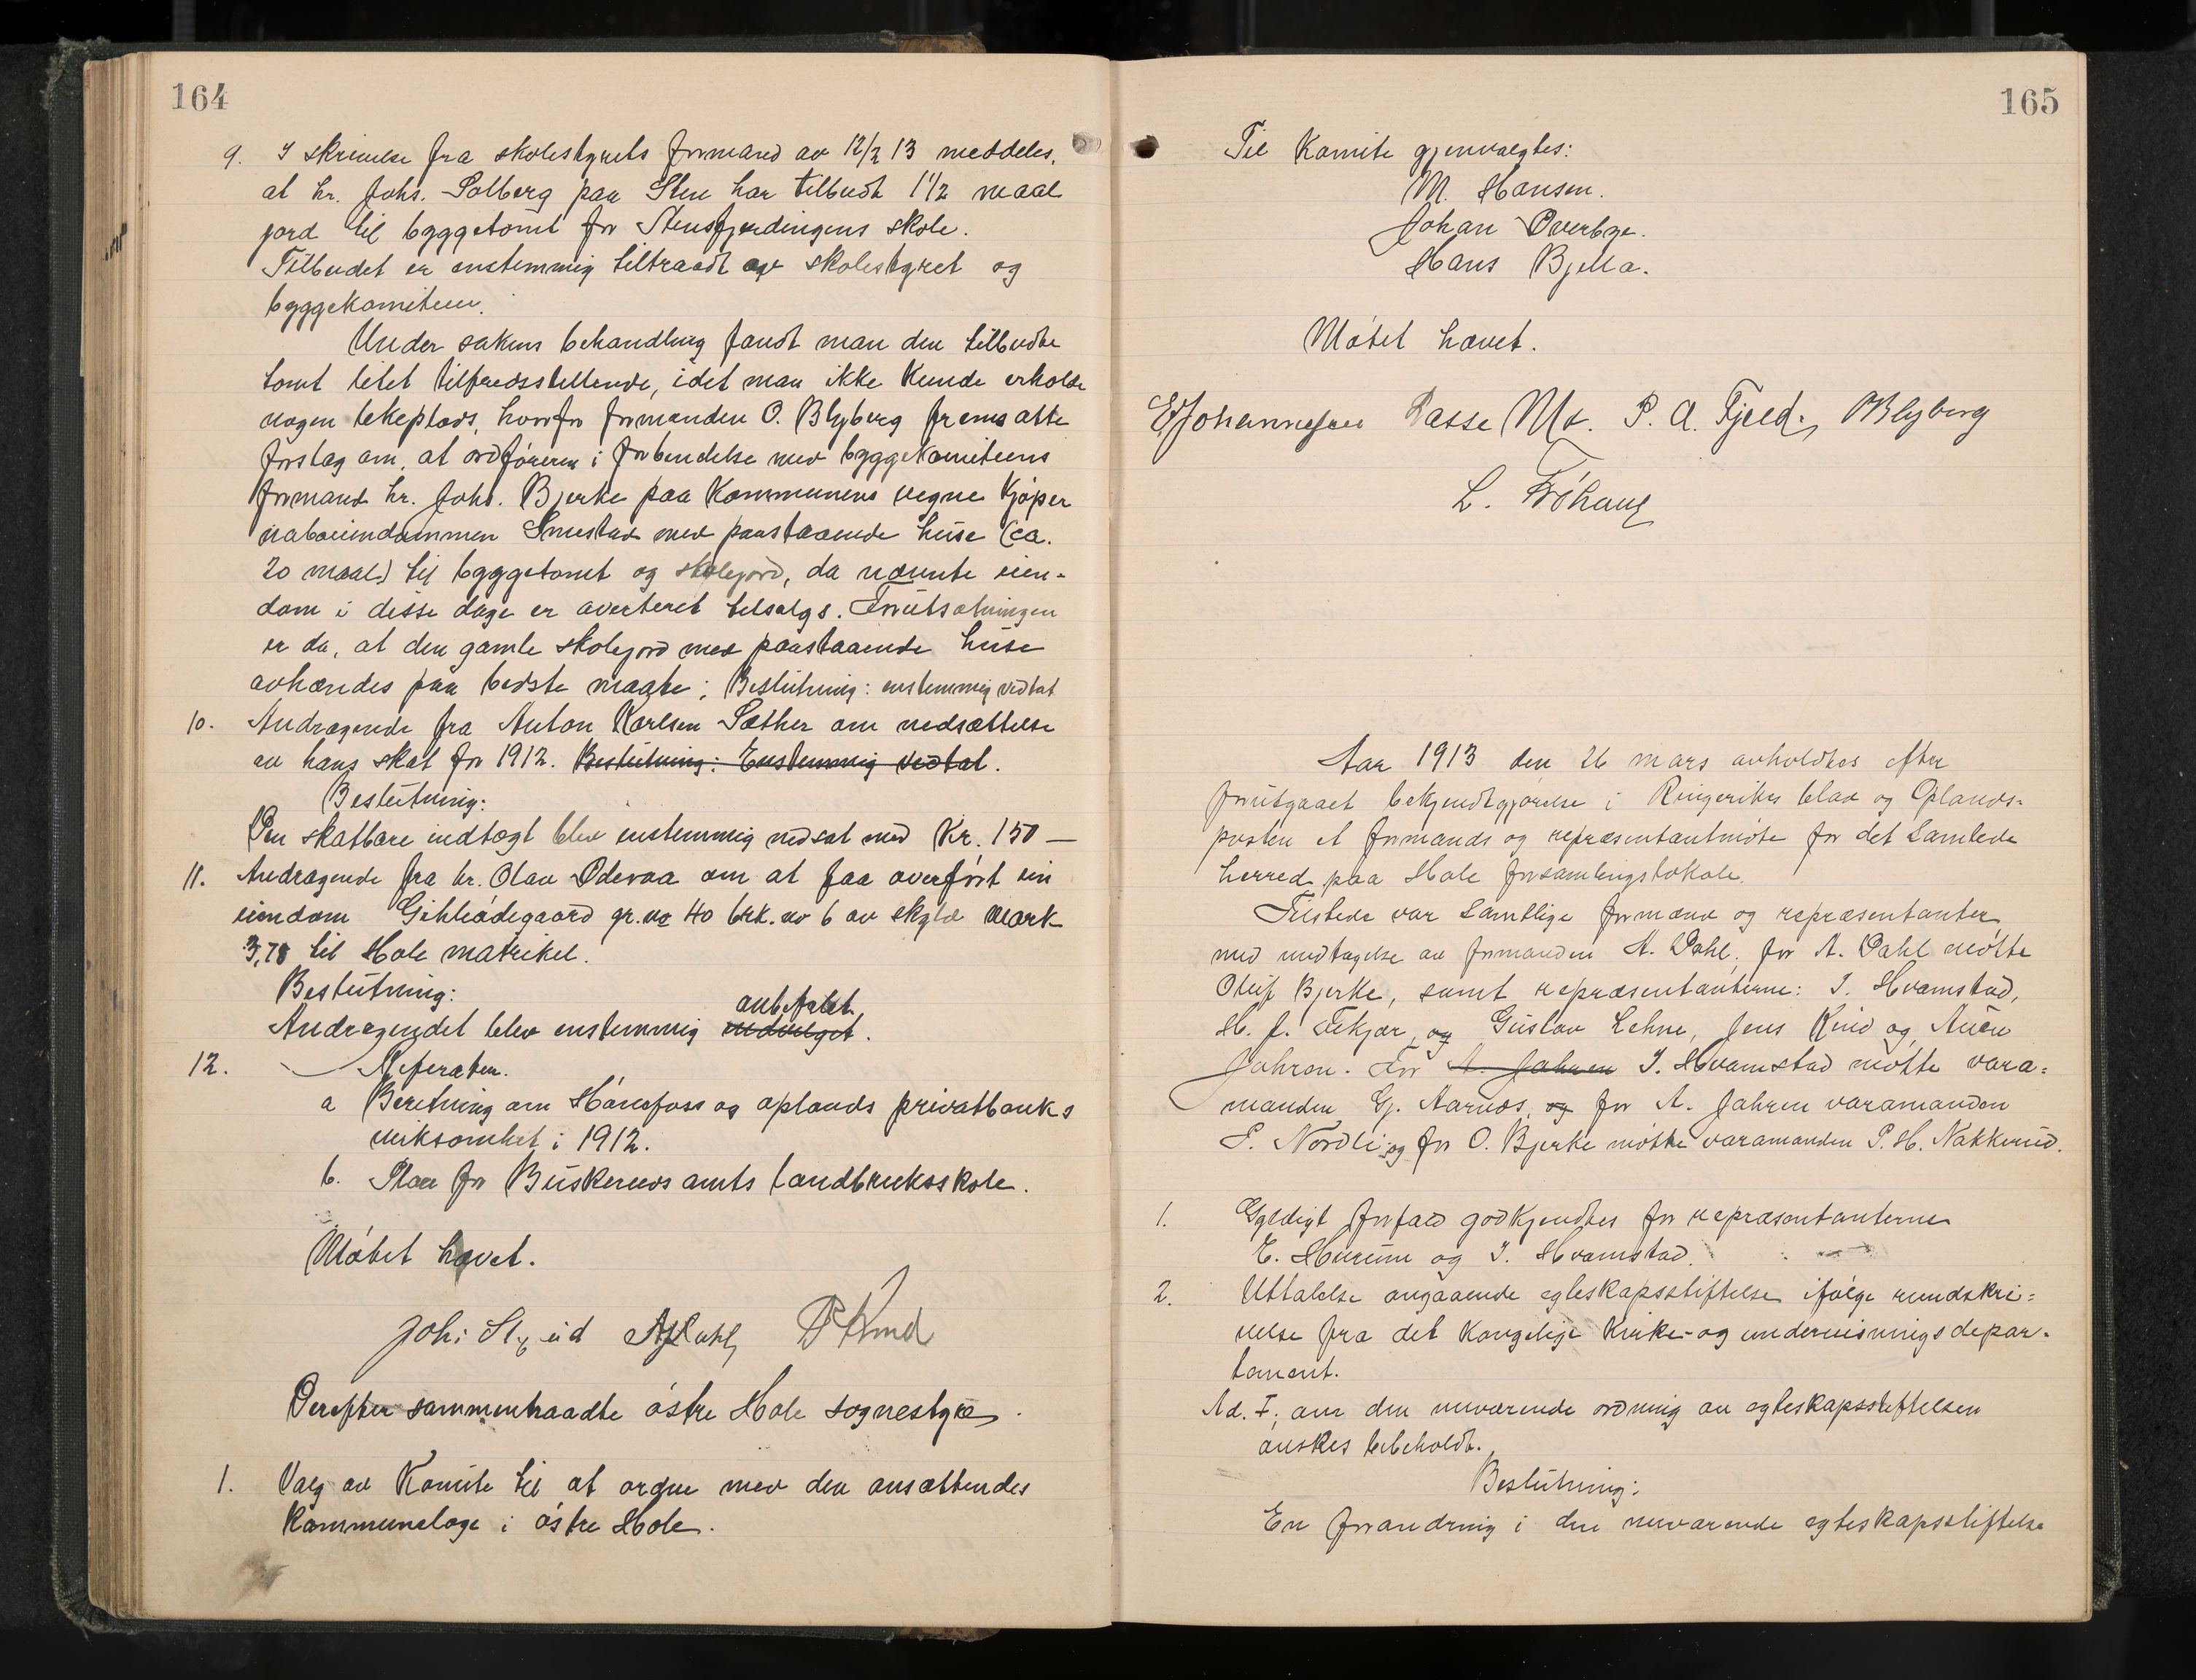 164
9. I skrivelse fra skolestyrets formand av 12/2 13 meddeles,
at hr. Johs. Solberg paa Sten har tilbudt 1 1/2 maal
jord til byggetomt for Stensfjerdingens skole.
Tilbudet er enstemmig tiltraadt av skolestyret og
byggekomiteen.
Under sakens behandling fandt man den tilbudte
tomt litet tilfredsstillende, idet man ikke kunde erholde
nogen lekeplads, hvorfor formanden O. Blyberg fremsatte
forslag om, at ordføreren i forbindelse med byggekomiteens
formand hr. Johs. Bjerke paa Kommunens vegne kjøper
naboeiendommen Smestad med paastaaende huse (ca.
20 maal) til byggetomt og skolejord, da nævnte eien-
dom i disse dage er averteret tilsalgs. Forutsætningen
er da, at den gamle skolejord med paastaaende huse
avhændes paa bedste maate; Beslutning: enstemmig vedtat
10. Andragende fra Anton Karlsen Sæther om nedsættelse
av hans skat for 1912. Beslutning: Enstemmig vedtat.
Beslutning:
Den skatbare indtægt blev enstemmig nedsat med Kr. 150 —
11. Andragende fra hr. Olav Ødevaa om at faa overført sin
eiendom gr. no 40 brk. no 6 av skyld mark
3,78 til Hole matrikel.
Beslutning:
anbefalet.
Andragendet blev enstemmig .
12. Referater.
a Beretning om Hønefoss og oplands privatbanks
virksomhet i 1912.
b. Plan for Buskeruds amts landbruksskole.
Møtet hævet.
Joh:
Derefter sammentraadte østre Hole sognestyre.
1. Valg av Komite til at ordne med den ansættendes
Kommunelæge i østre Hole.
165
Til Komite gjenvalgtes:
M. Hansen.
Johan Øverbye.
Hans Bjella.
Møtet hævet.
E Johannessen Lasse Mo. P. A. Fjeld. O Blyberg
L. Frøhaug
Aar 1913 den 26 mars avholdtes efter
forutgaaet bekjendtgjørelse i Ringerikes blad og Oplands-
posten et formands og repræsentantmøte for det samlede
herred paa Hole forsamlingslokale.
Tilstede var samtlige formænd og repræsentanter,
med undtagelse av formanden A. Dahl, for A. Dahl møtte
Oluf Bjerke, samt repræsentanterne: I. Hvamstad,
H. J. Fekjær, og Gustav Lehne, Jens Rud og Aven
Jahren. For A. Jahren I. Hvamstad møtte vara-
manden Gj. Aarnes, og for A. Jahren varamanden
P. Nordli og for O. Bjerke møtte varamanden P. H. Nakkerud.
1. Gyldigt forfald godkjendtes for repræsentanterne
E. Hurum og I. Hvamstad.
2. Uttalelse angaaende egteskapsstiftelse ifølge rundskri-
velse fra det Kongelige Kirke- og undervisningsdepar-
tement.
Ad. I, om den nuværende ordning av egteskapsstiftelsen
ønskes bibeholdt.
Beslutning:
En forandring i den nuværende egteskapsstiftelse